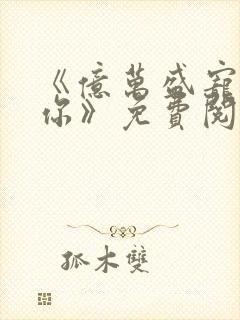 《億萬盛寵
你》免費閱
孤木雙